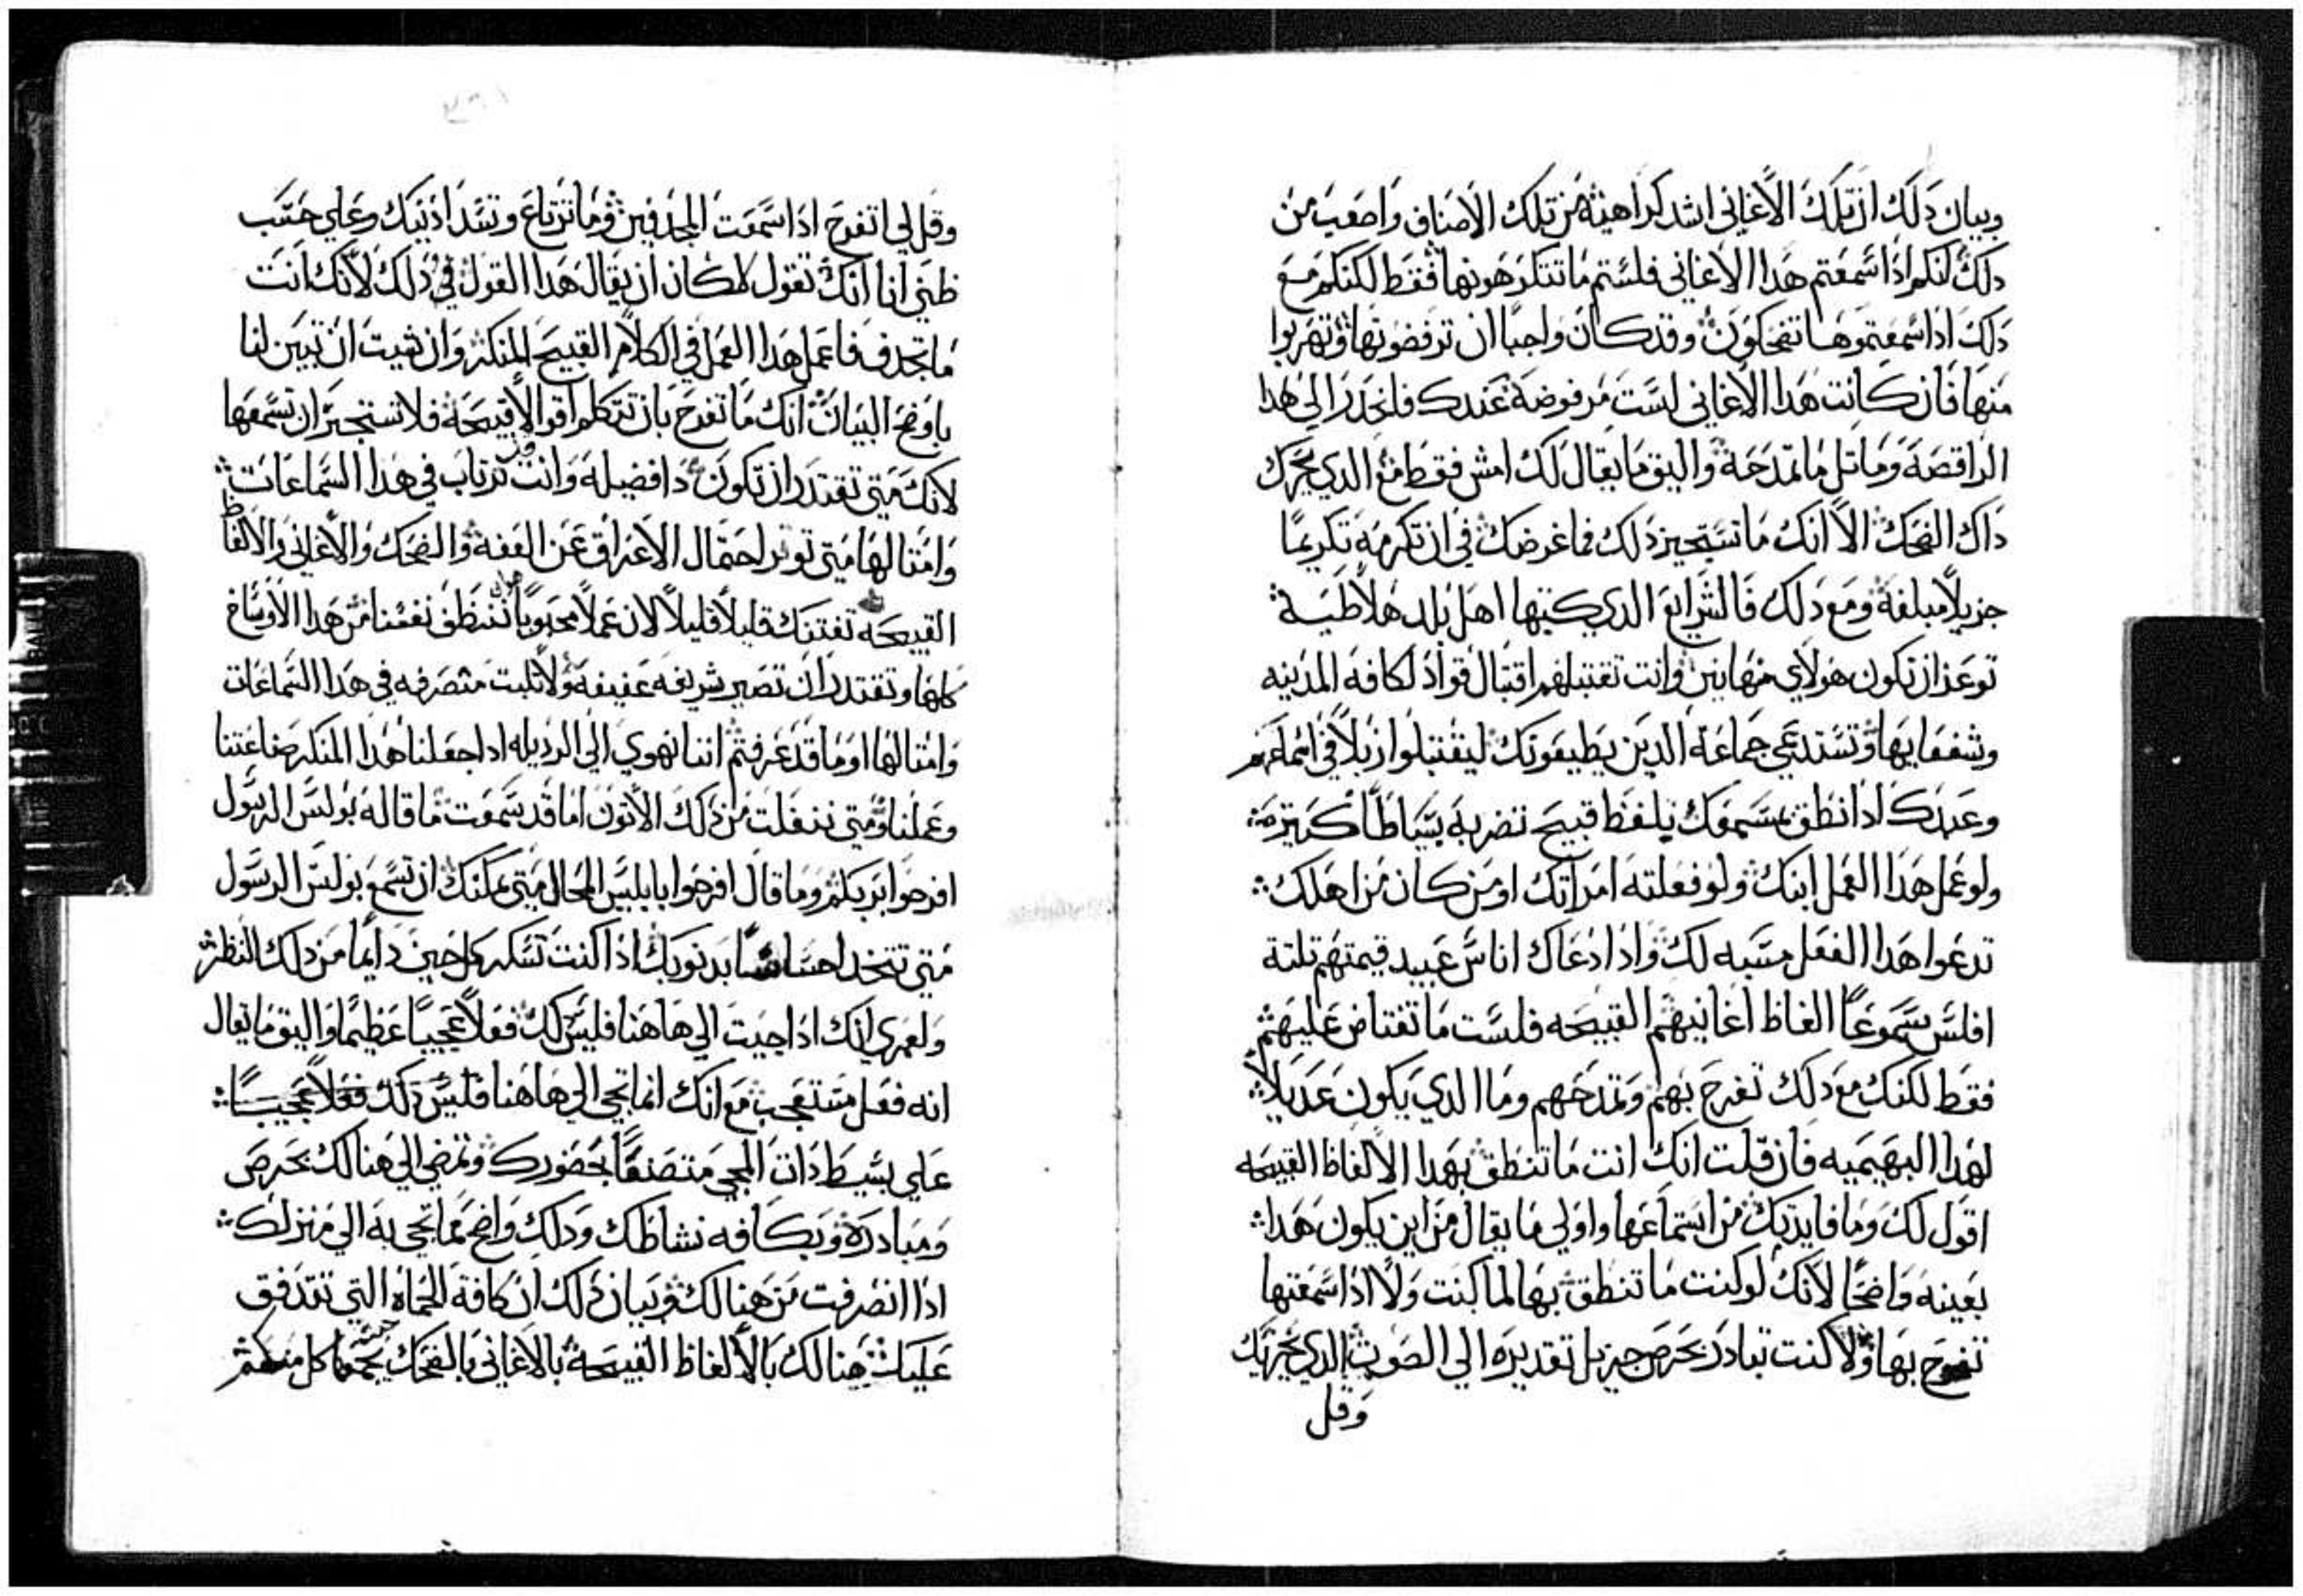 وبيان دلك ان تلك الاغاني اشد كراهيته من تلك الاصناف واصعب من
دلك لنكم اذا سمعتم هدا الاغاني فلستم ما تتكرهونها فقط لكنكم مع
دلك اذا سمعتموها تضحكون وقد كان واجبًا ان ترفضونها وتهربوا
منها فان كانت هدا الاغاني لست مرفوضة عندك فانحدر الي هدا
الراقصة وماتل ما تمدحة واليق ما يقال لك امش فقط مع الدي يحرك
داك الضحك الا انك ما تستجيز دلك فما غرضك في ان تكرمه تكريمًا
جزيلاً مبلغة ومع دلك فالشرايع الدي كتبها اهل بلد هلاطية
توعز ان تكون هولاي مهانين وانت تقتبلهم اقتبال قواد لكافة المدينه
وشفعايها وتستدعي جماعة الدين يطيفونك ليقتبلوا زبلاً في
وعبدك اذا نطق بمسمعك بلفظ قبيح تضربة سياطًا كتيرة
ولو عمل هدا العمل ابنك ولو فعلته امراتك او من كان من اهلك
تدعوا هدا الفعل مسبه لك واذا دعاك اناس عبيد قيمتهم تلتة
افلس سموعًا الفاظ اغانيهم القبيحه فلست ما تغتاض عليهم
فقط لكنك مع دلك تفرح بهم وتمدحهم وما الدي يكون عديلاً
لهدا البهيميه فان قلت انك انت ما تنطق بهدا الالفاظ القبيحه
اقول لك وما فايدتك من استماعها واولي ما يقال من اين يكون هدا
بعينه واضحًا لانك لو كنت ما تنطق بها لما كنت ولا اذا سمعتها
تفرح بها ولا كنت تبادر بحرص جزيل تقديره الي الصوت الدي يخزيك
وقل
وقل لي اتفرح اذا سمعت المجدفين وما ترتاع وتسد اذنيك وعلي حسب
ظني انا انك تقول لا كان ان يقال هدا القول في دلك لانك انت
ما تجدف فاعمل هدا العمل في الكلام القبيح المنكر وان شيت ان تبين لنا
باوضح البيان انك ما تفرح بان تتكلم اقوالا قبيحة فلا تستجيز ان تسمعها
لانك متي تقتدر ان تكون دا فضيله وانت قد ترتاب في هدا السماعات
وامتالها متي توتر احتمال الاعراق عن العفة والضحك والاغاني والالفاظ
القبيحه تفتنك قليلاً قليلاً لان عملاً محبوبًا ان ننظف نفسنا من هدا الاوساخ
كلها وتقتدر ان تصير شريفه عفيفة ولا تلبت متصرفه في هدا السماعات
وامتالها او ما قد عرفتم اننا نهوي الي الرديله اذا جعلنا هدا المنكر صناعتنا
وعملنا ومتي ننفلت من دلك الاتون اما قد سمعت ما قاله بولس الرسول
افرحوا بربكم وما قال افرحوا بابليس المحال متي يمكنك ان تسمع بولس الرسول
متي تتخد احساسًا بدنوبك اذا كنت تسكر كل حين دايمًا من دلك النظر
ولعمري انك اذا جيت الي هاهنا فليس لك فعلاً عجيبًا عظيمًا واليق ما يقال
انه فعل مستعجب مع انك انما تجي الي هاهنا فليس دلك فعلاً عجيبًا
علي بسيط دات المجي متصنعًا بحضورك وتمضي الي هنالك بحرص
ومبادرة وبكافه نشاطك ودلك واضح مما تجي به الي منزلك
اذا انصرفت من هنالك وبيان دلك ان كافة الحماة التي تتدفق
عليك هنالك بالالفاظ القبيحة بالاغاني بالضحك يجمعها كل منكم